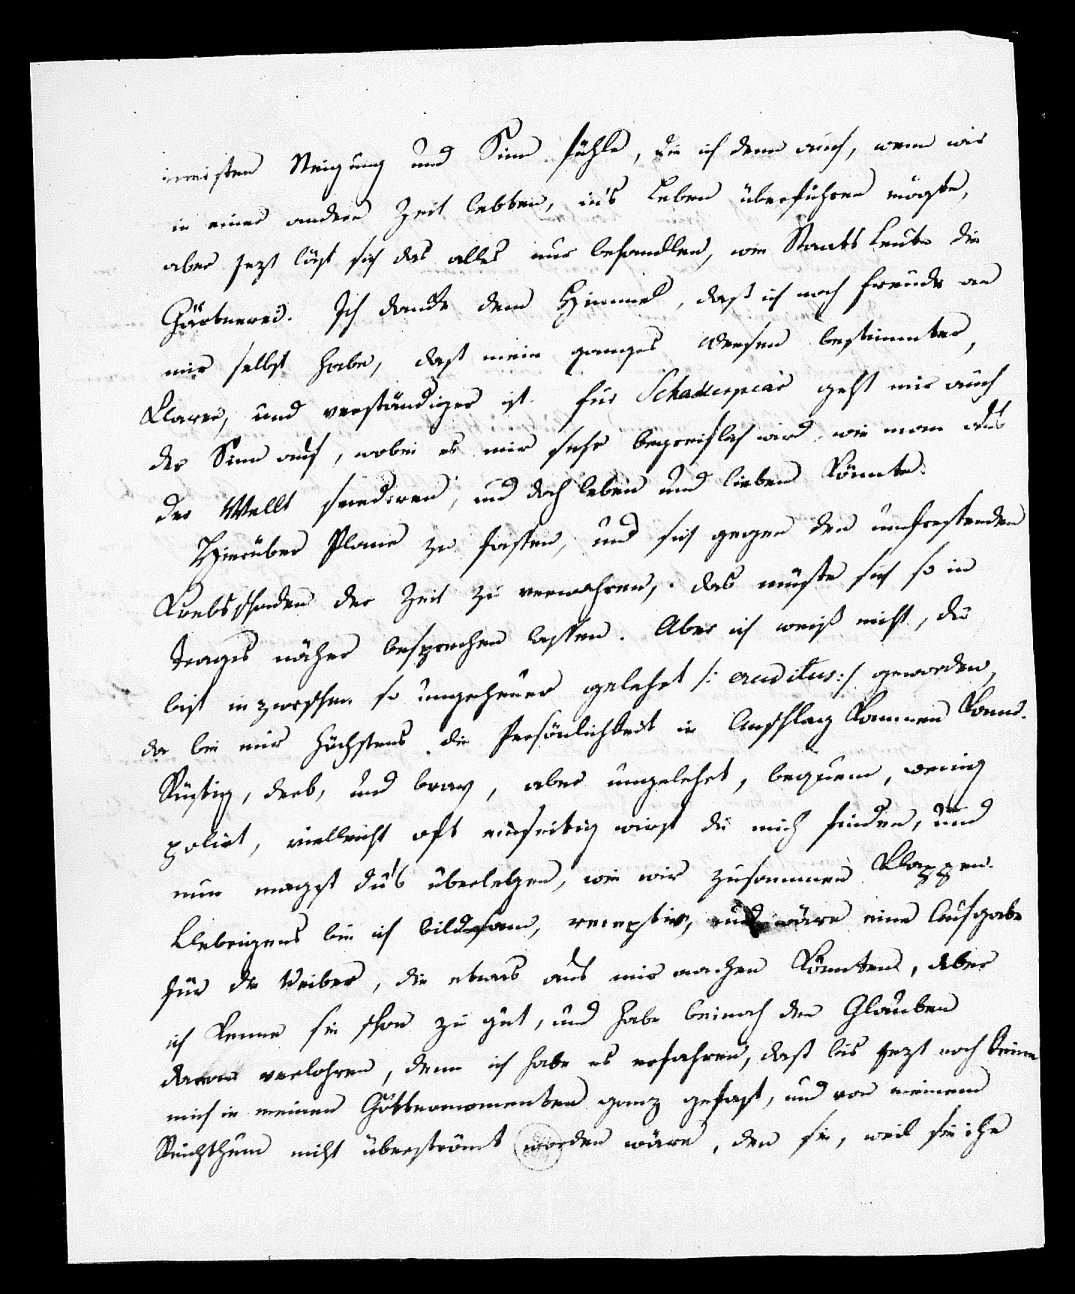 meisten Neigung und Sinn fühle, die ich denn auch, wenn wir
in einer andern Zeit lebten, in's Leben überführen mögte,
aber jezt läst sich das alles nur behandlen, wie Staats Leute die
Gärtnerei. Ich danke dem Himmel, daß ich noch Freude an
mir selbst habe, daß mein ganzes Wesen bestimmter,
klarer, und verständiger ist. Für Schakespear geht mir auch
der Sinn auf, wobei es mir sehr begreiflich wird, wie man aus
der Wellt, und doch leben und lieben könnte.
Hierüber Plane zu fassen, und sich gegen den umfressenden
Krebsschaden der Zeit zu verwahren, das müste sich so in
näher besprechen lassen. Aber ich weiß nicht, du
bist inzwischen so ungeheuer gelehrt /: eruditus :/ geworden,
da bei mir höchstens die Persönlichkeit in Anschlag kommen kann.
Rüstig, derb, und brav, aber ungelehrt, bequem, wenig
polirt, vielleicht oft einseitig wirst du mich finden, und
nun magst du's überlegen, wie wir zusammen klappen.
Uebrigens bin ich bildsam, receptiv, und wäre eine Aufgabe
für die Weiber, die etwas aus mir machen könnten, aber
ich kenne sie schon zu gut, und habe beinah den Glauben
daran verlohren, denn ich habe es erfahren, daß bis jezt noch keine
mich in meinen Göttermomenten ganz gefast, und von meinem
Reichthum nicht überströmt worden wäre, den sie, weil sie ihn